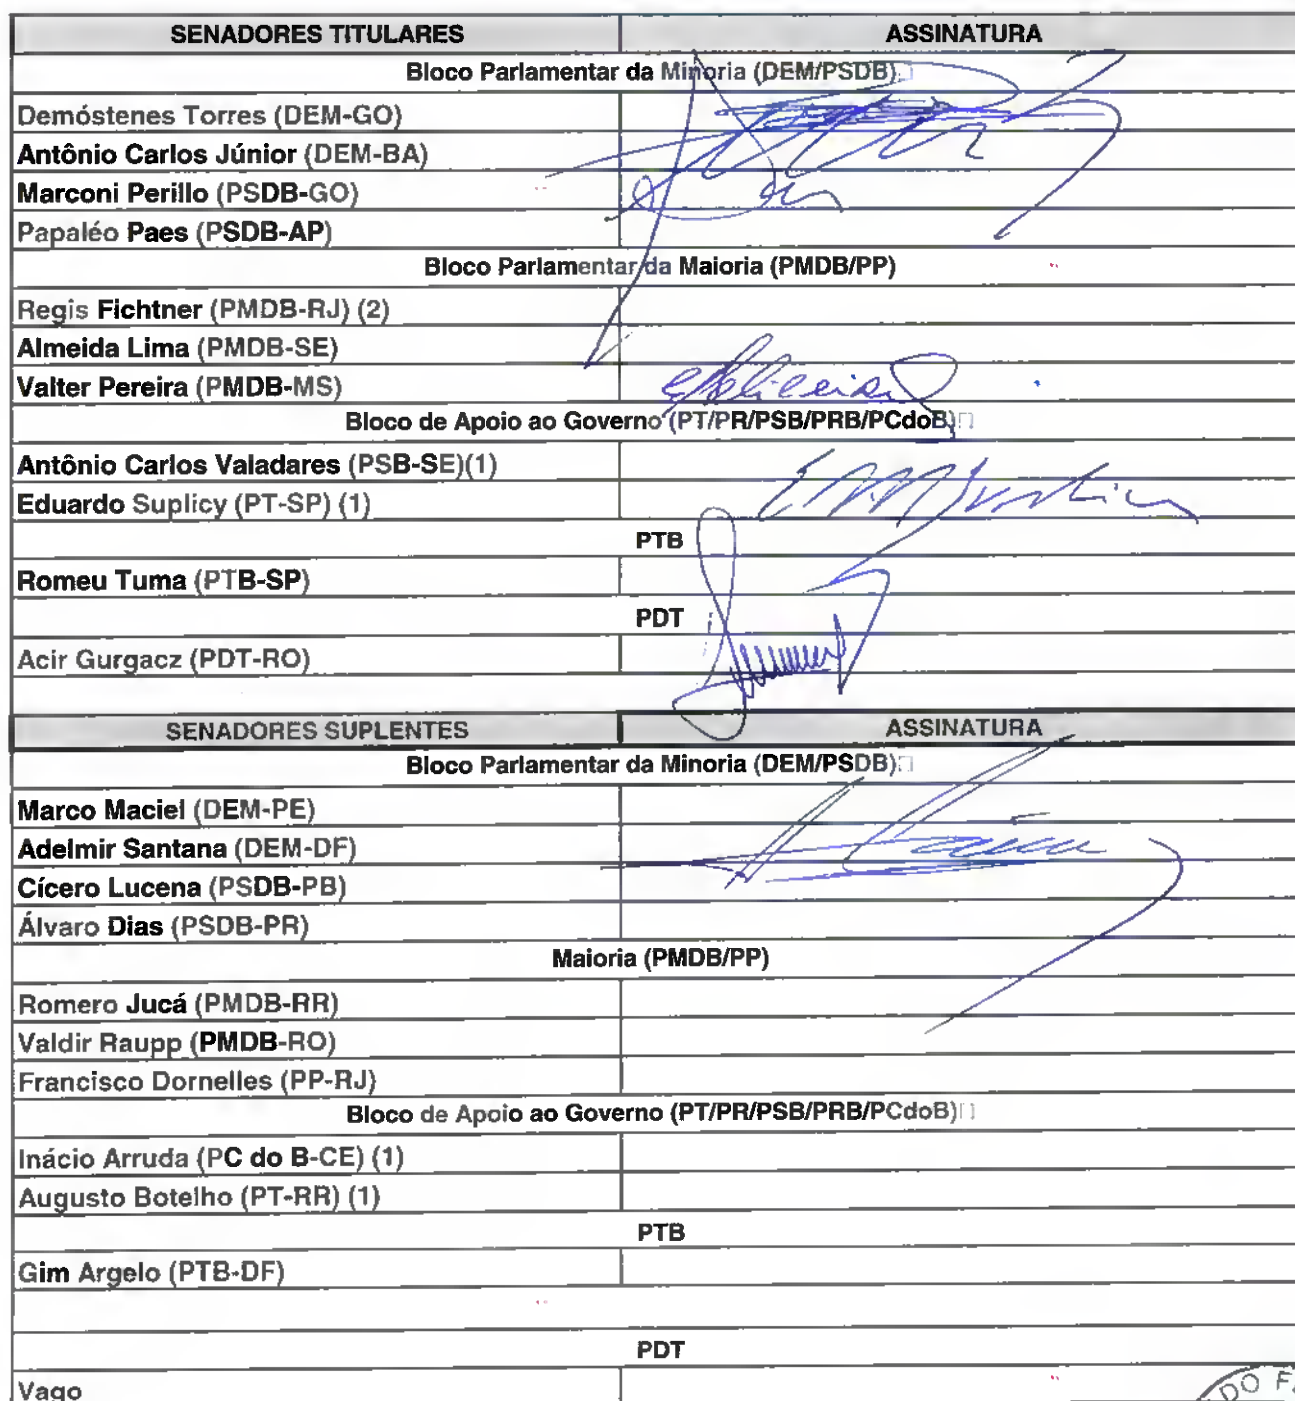 SENADORES TITULARES ASSINATURA
Bloco Parlamentar da Minoria (DEM/PSDB)
Demóstenes Torres (DEM-GO)
Antônio Carlos Júnior (DEM-BA)
Marconi Perillo (PSDB-GO)
Papaléo Paes (PSDB-AP)
Bloco Parlamentar da Maioria (PMDB/PP)
Regis Fichtner (PMDB-RJ) (2)
Almeida Lima (PMDB-SE)
Valter Pereira (PMDB-MS)
Bloco de Apoio ao Governo (PT/PR/PSB/PRB/PCdoB)
Antônio Carlos Valadares (PSB-SE)(1)
Eduardo Suplicy (PT-SP) (1)
PTB
Romeu Tuma (PTB-SP)
PDT
Acir Gurgacz (PDT-RO)
SENADORES SUPLENTES ASSINATURA
Bloco Parlamentar da Minoria (DEM/PSDB)
Marco Maciel (DEM-PE)
Adelmir Santana (DEM-DF)
Cícero Lucena (PSDB-PB)
Álvaro Dias (PSDB-PR)
Maioria (PMDB/PP)
Romero Jucá (PMDB-RR)
Valdir Raupp (PMDB-RO)
Francisco Dornelles (PP-RJ)
Bloco de Apoio ao Governo (PT/PR/PSB/PRB/PCdoB)
Inácio Arruda (PC do B-CE) (1)
Augusto Botelho (PT-RR) (1)
PTB
Gim Argelo (PTB-DF)
PDT
Vago